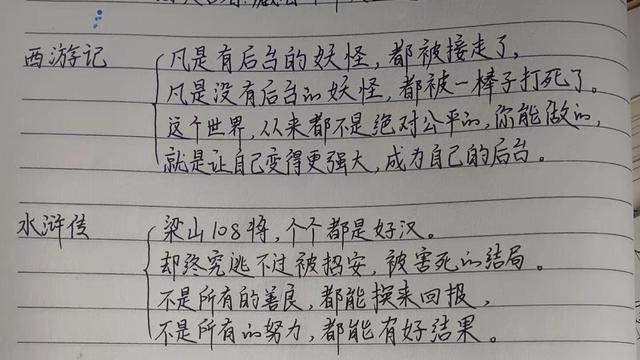 西游记
凡是有后台的妖怪，都被接走了，
凡是没有后台的妖怪，都被一棒子打死了。
这个世界，从来都不是绝对公平的，你能做的，
就是让自己变得更强大，成为自己的后台。
水浒传
梁山108将，个个都是好汉。
却终究逃不过被招安，被害死的结局。
不是所有的善良，都能换来回报，
不是所有的努力，都能有好结果。